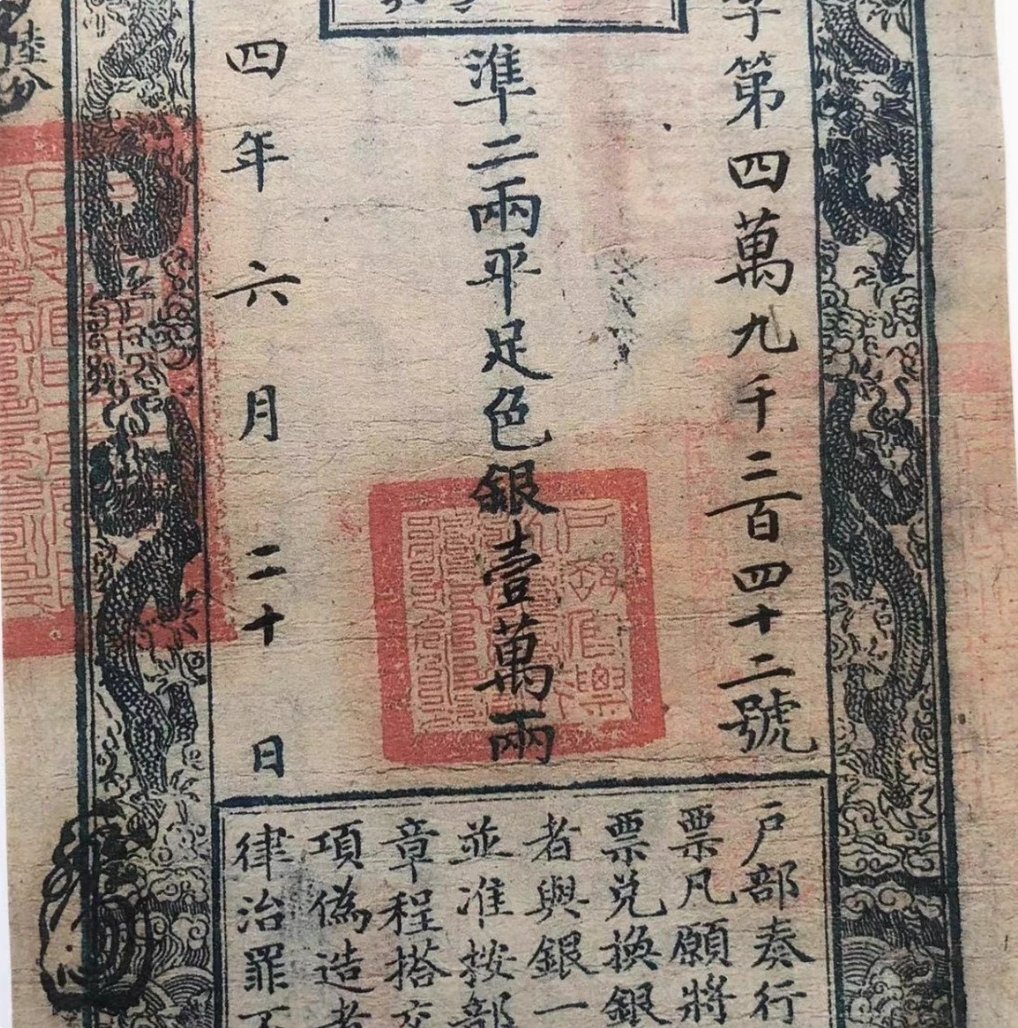 字第四萬九千二百四十二號
準二兩平足色銀壹萬兩
四年六月二十日
陸分
戶部奏行
票凡願將
票兌換銀
者與銀一
並准按部
章程搭
項偽造者
律治罪不